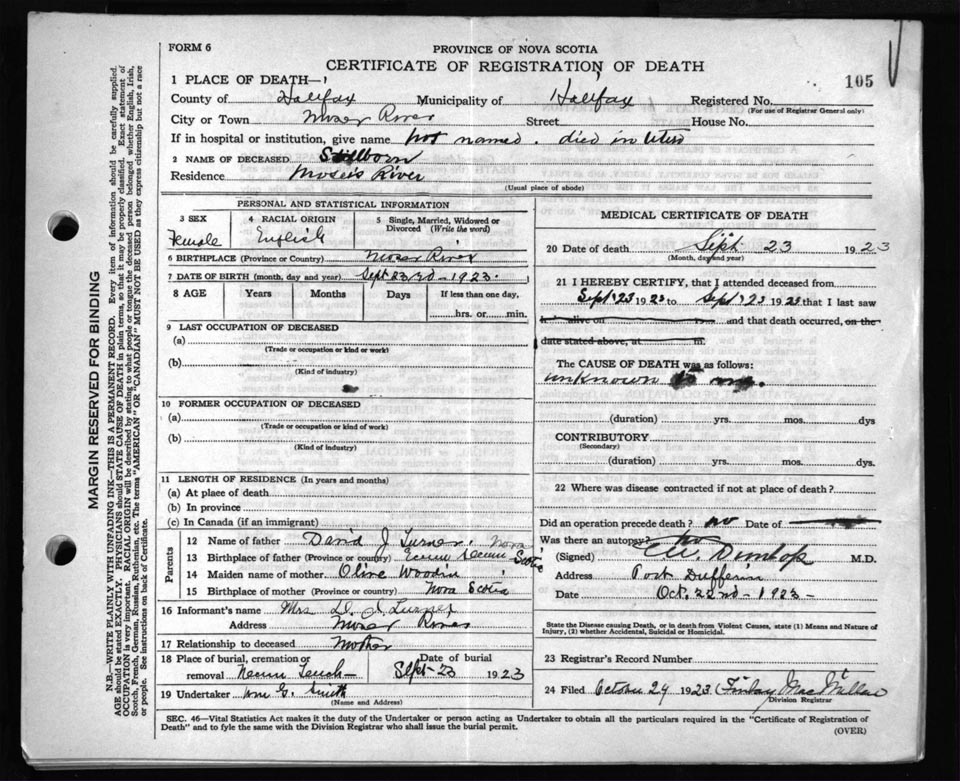 FORM 6
PROVINCE OF NOVA SCOTIA
CERTIFICATE OF REGISTRATION OF DEATH
105
1 PLACE OF DEATH—
County of Halifax Municipality of Halifax Registered No.
(For use of Registrar General only)
City or Town Moser River Street House No.
If in hospital or institution, give name not named. died in utero
2 NAME OF DECEASED Stillborn
Residence Moser's River
(Usual place of abode)
PERSONAL AND STATISTICAL INFORMATION
3 SEX Female
4 RACIAL ORIGIN English
5 Single, Married, Widowed or Divorced (Write the word)
6 BIRTHPLACE (Province or Country) Moser River
7 DATE OF BIRTH (month, day and year) Sept 23rd - 1923.
8 AGE Years Months Days If less than one day,
hrs. or min.
9 LAST OCCUPATION OF DECEASED
(a)
(Trade or occupation or kind or work)
(b)
(Kind of industry)
10 FORMER OCCUPATION OF DECEASED
(a)
(Trade or occupation or kind of work)
(b)
(Kind of industry)
11 LENGTH OF RESIDENCE (In years and months)
(a) At place of death
(b) In province
(c) In Canada (if an immigrant)
Parents
12 Name of father David J Turner. Nova
13 Birthplace of father (Province or country) Ecum Secum Scotia
14 Maiden name of mother Olive
15 Birthplace of mother (Province or country) Nova Scotia
16 Informant's name Mrs D. J. Turner
Address Moser River
17 Relationship to deceased Mother
18 Place of burial, cremation or removal Necum Teuch - Date of burial Sept - 23 1923
19 Undertaker Wm G. Smith
(Name and Address)
MEDICAL CERTIFICATE OF DEATH
20 Date of death Sept 23 1923
(Month, day and year)
21 I HEREBY CERTIFY, that I attended deceased from
Sept '23 1923 to Sept '23 1923 that I last saw
h alive on and that death occurred, on the
date stated above, at m.
The CAUSE OF DEATH was as follows:
unknown to me.
(duration) yrs. mos. dys
CONTRIBUTORY
(Secondary)
(duration) yrs. mos. dys.
22 Where was disease contracted if not at place of death?
Did an operation precede death? no Date of
Was there an autopsy? no
(Signed) Dunlop M.D.
Address Port Dufferin
Date Oct. 22nd - 1923 -
State the Disease causing Death, or in death from Violent Causes, state (1) Means and Nature of
Injury, (2) whether Accidental, Suicidal or Homicidal.
23 Registrar's Record Number
24 Filed October 29 1923 Finlay
Division Registrar
SEC. 46—Vital Statistics Act makes it the duty of the Undertaker or person acting as Undertaker to obtain all the particulars required in the "Certificate of Registration of
Death" and to fyle the same with the Division Registrar who shall issue the burial permit.
(OVER)
MARGIN RESERVED FOR BINDING
N.B.—WRITE PLAINLY WITH UNFADING INK—THIS IS A PERMANENT RECORD. Every item of information should be carefully supplied.
AGE should be stated EXACTLY. PHYSICIANS should STATE CAUSE OF DEATH in plain terms, so that it may be properly classified. Exact statement of
OCCUPATION is very important. RACIAL ORIGIN will be described by stating to what people or tongue the deceased person belonged whether English, Irish,
Scotch, French, German, Russian, Ruthenian, etc. The terms "AMERICAN" OR "CANADIAN" MUST NOT BE USED as they express citizenship but not a race
or people. See instructions on back of Certificate.